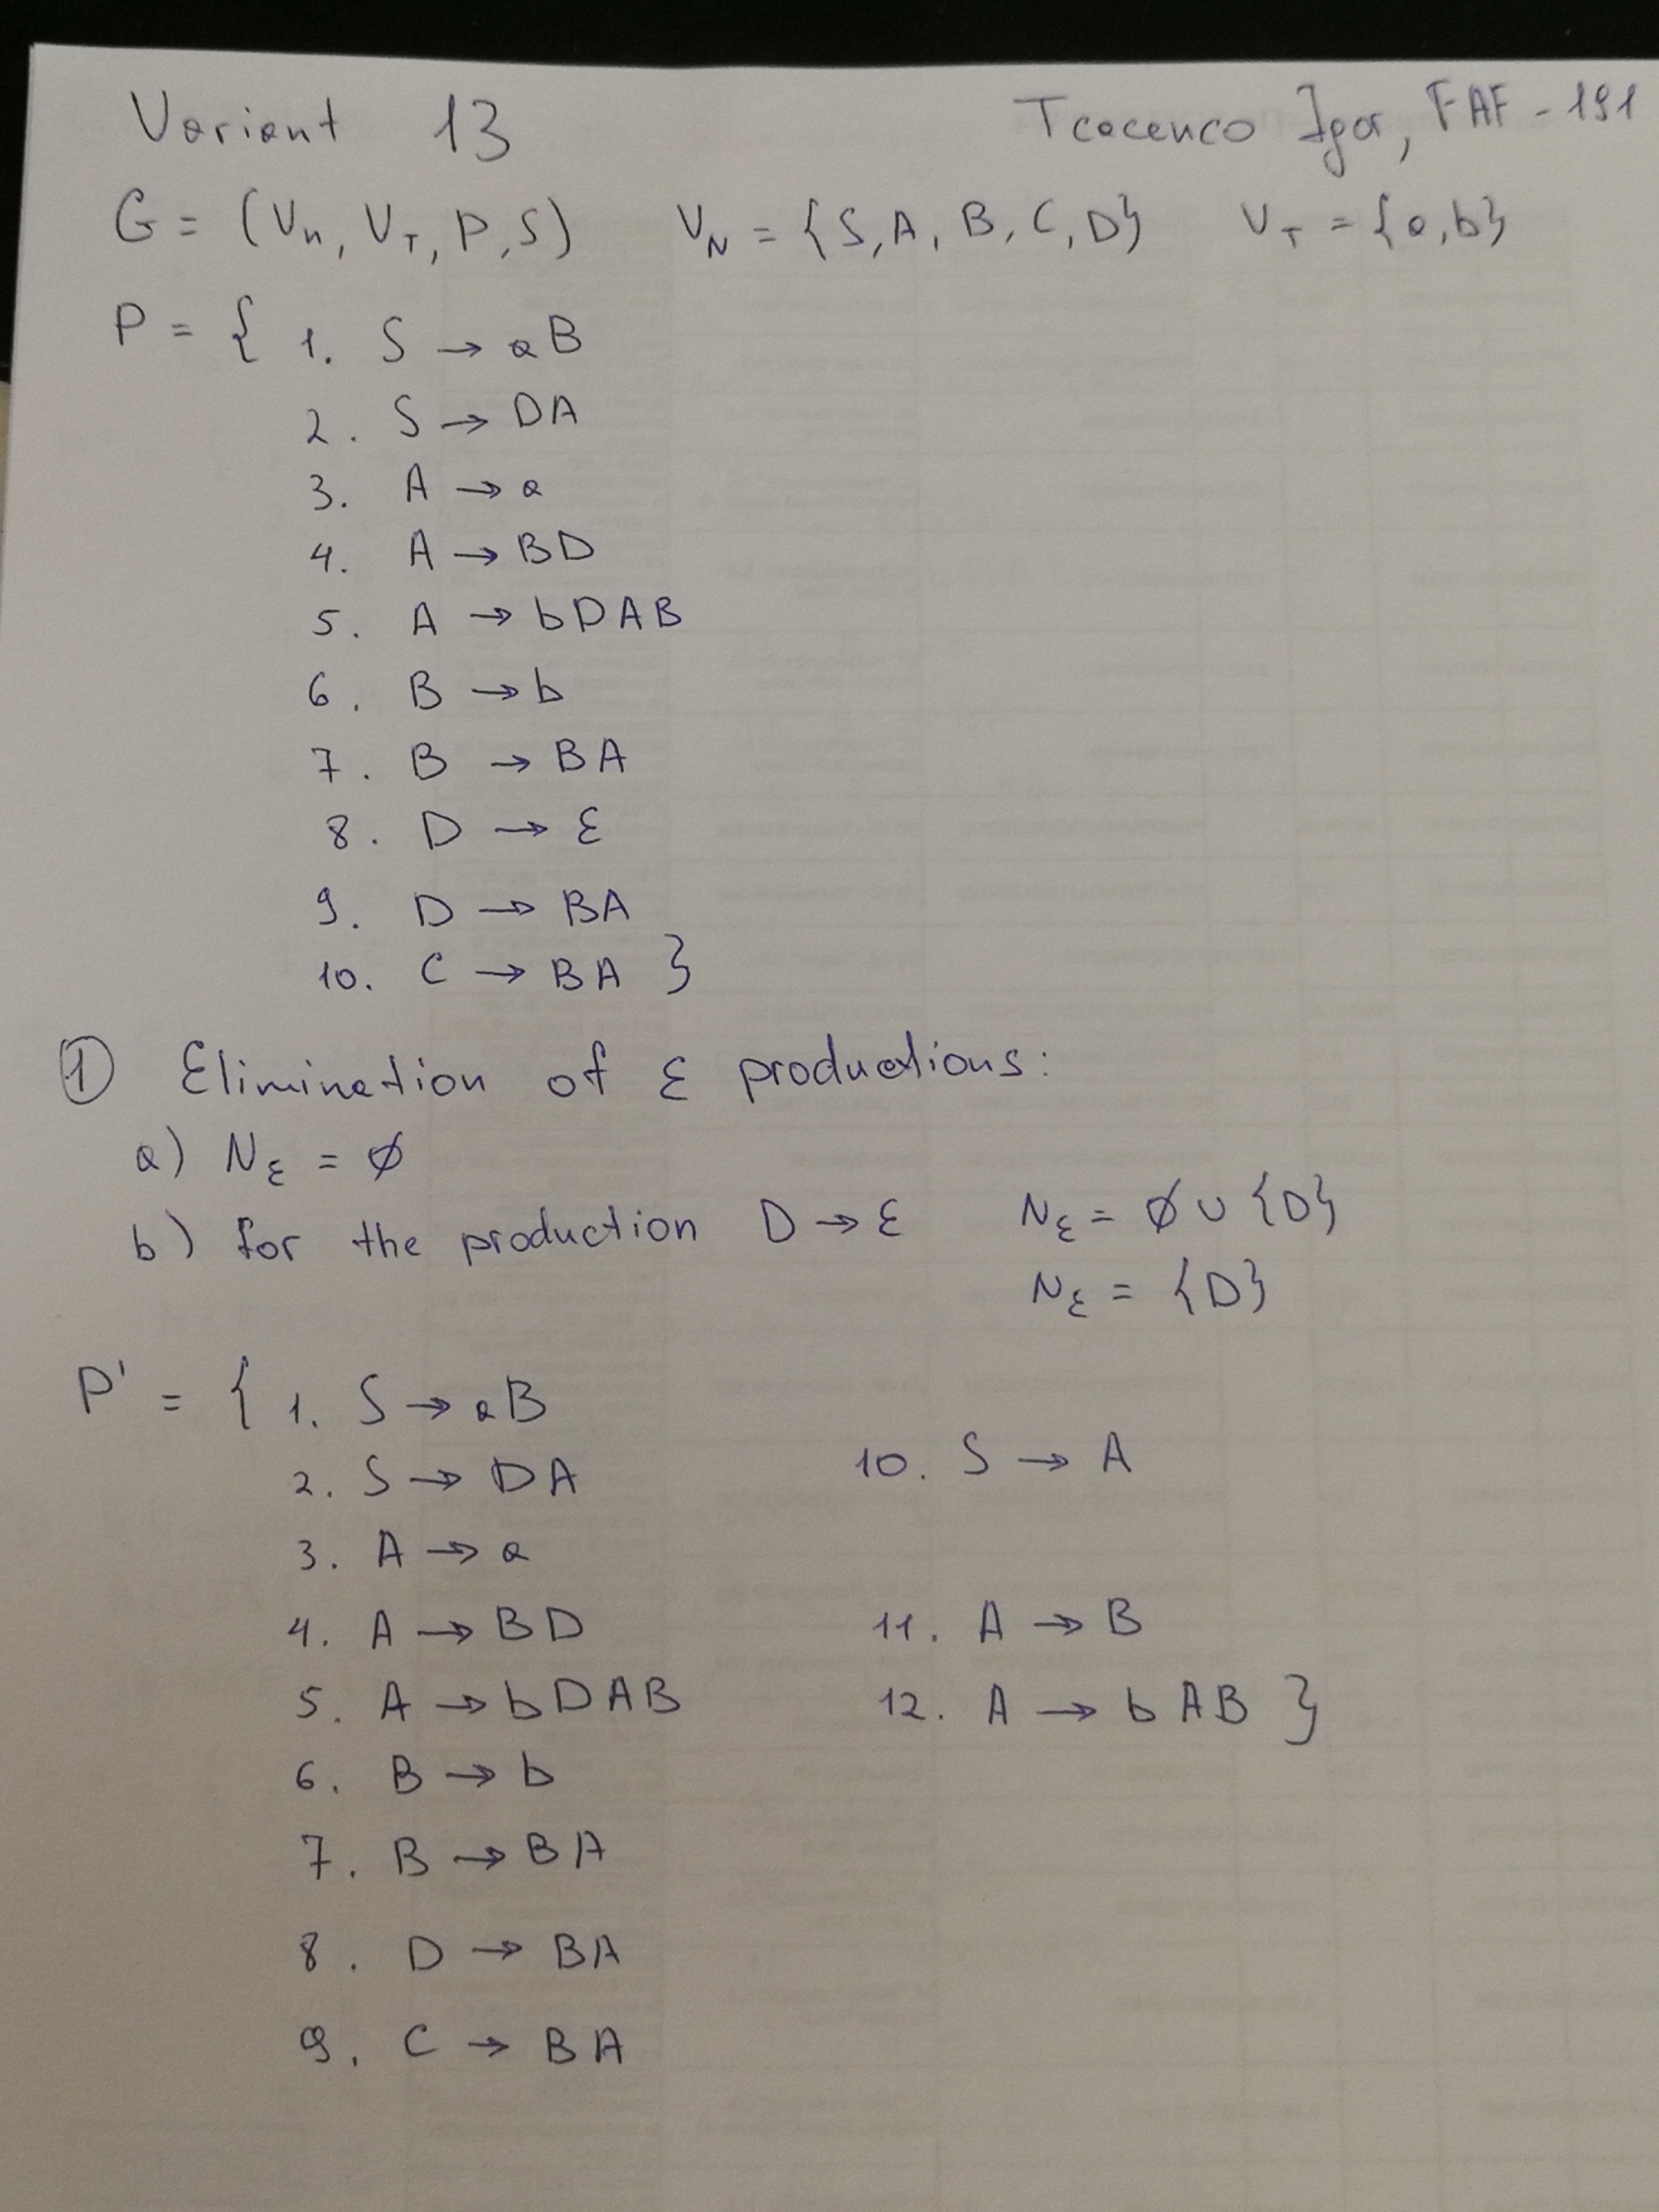 Variant 13
Tcacenco Igor, FAF - 191
G = (Vn, VT, P, S) VN = {S, A, B, C, D} VT = {a, b}
P = { 1. S → aB
2. S → DA
3. A → a
4. A → BD
5. A → bDAB
6. B → b
7. B → BA
8. D → ε
9. D → BA
10. C → BA }
① Elimination of ε productions:
a) Nε = ∅
b) for the production D → ε Nε = ∅ ∪ {D}
Nε = {D}
P' = { 1. S → aB
2. S → DA 10. S → A
3. A → a
4. A → BD 11. A → B
5. A → bDAB 12. A → bAB }
6. B → b
7. B → BA
8. D → BA
9. C → BA